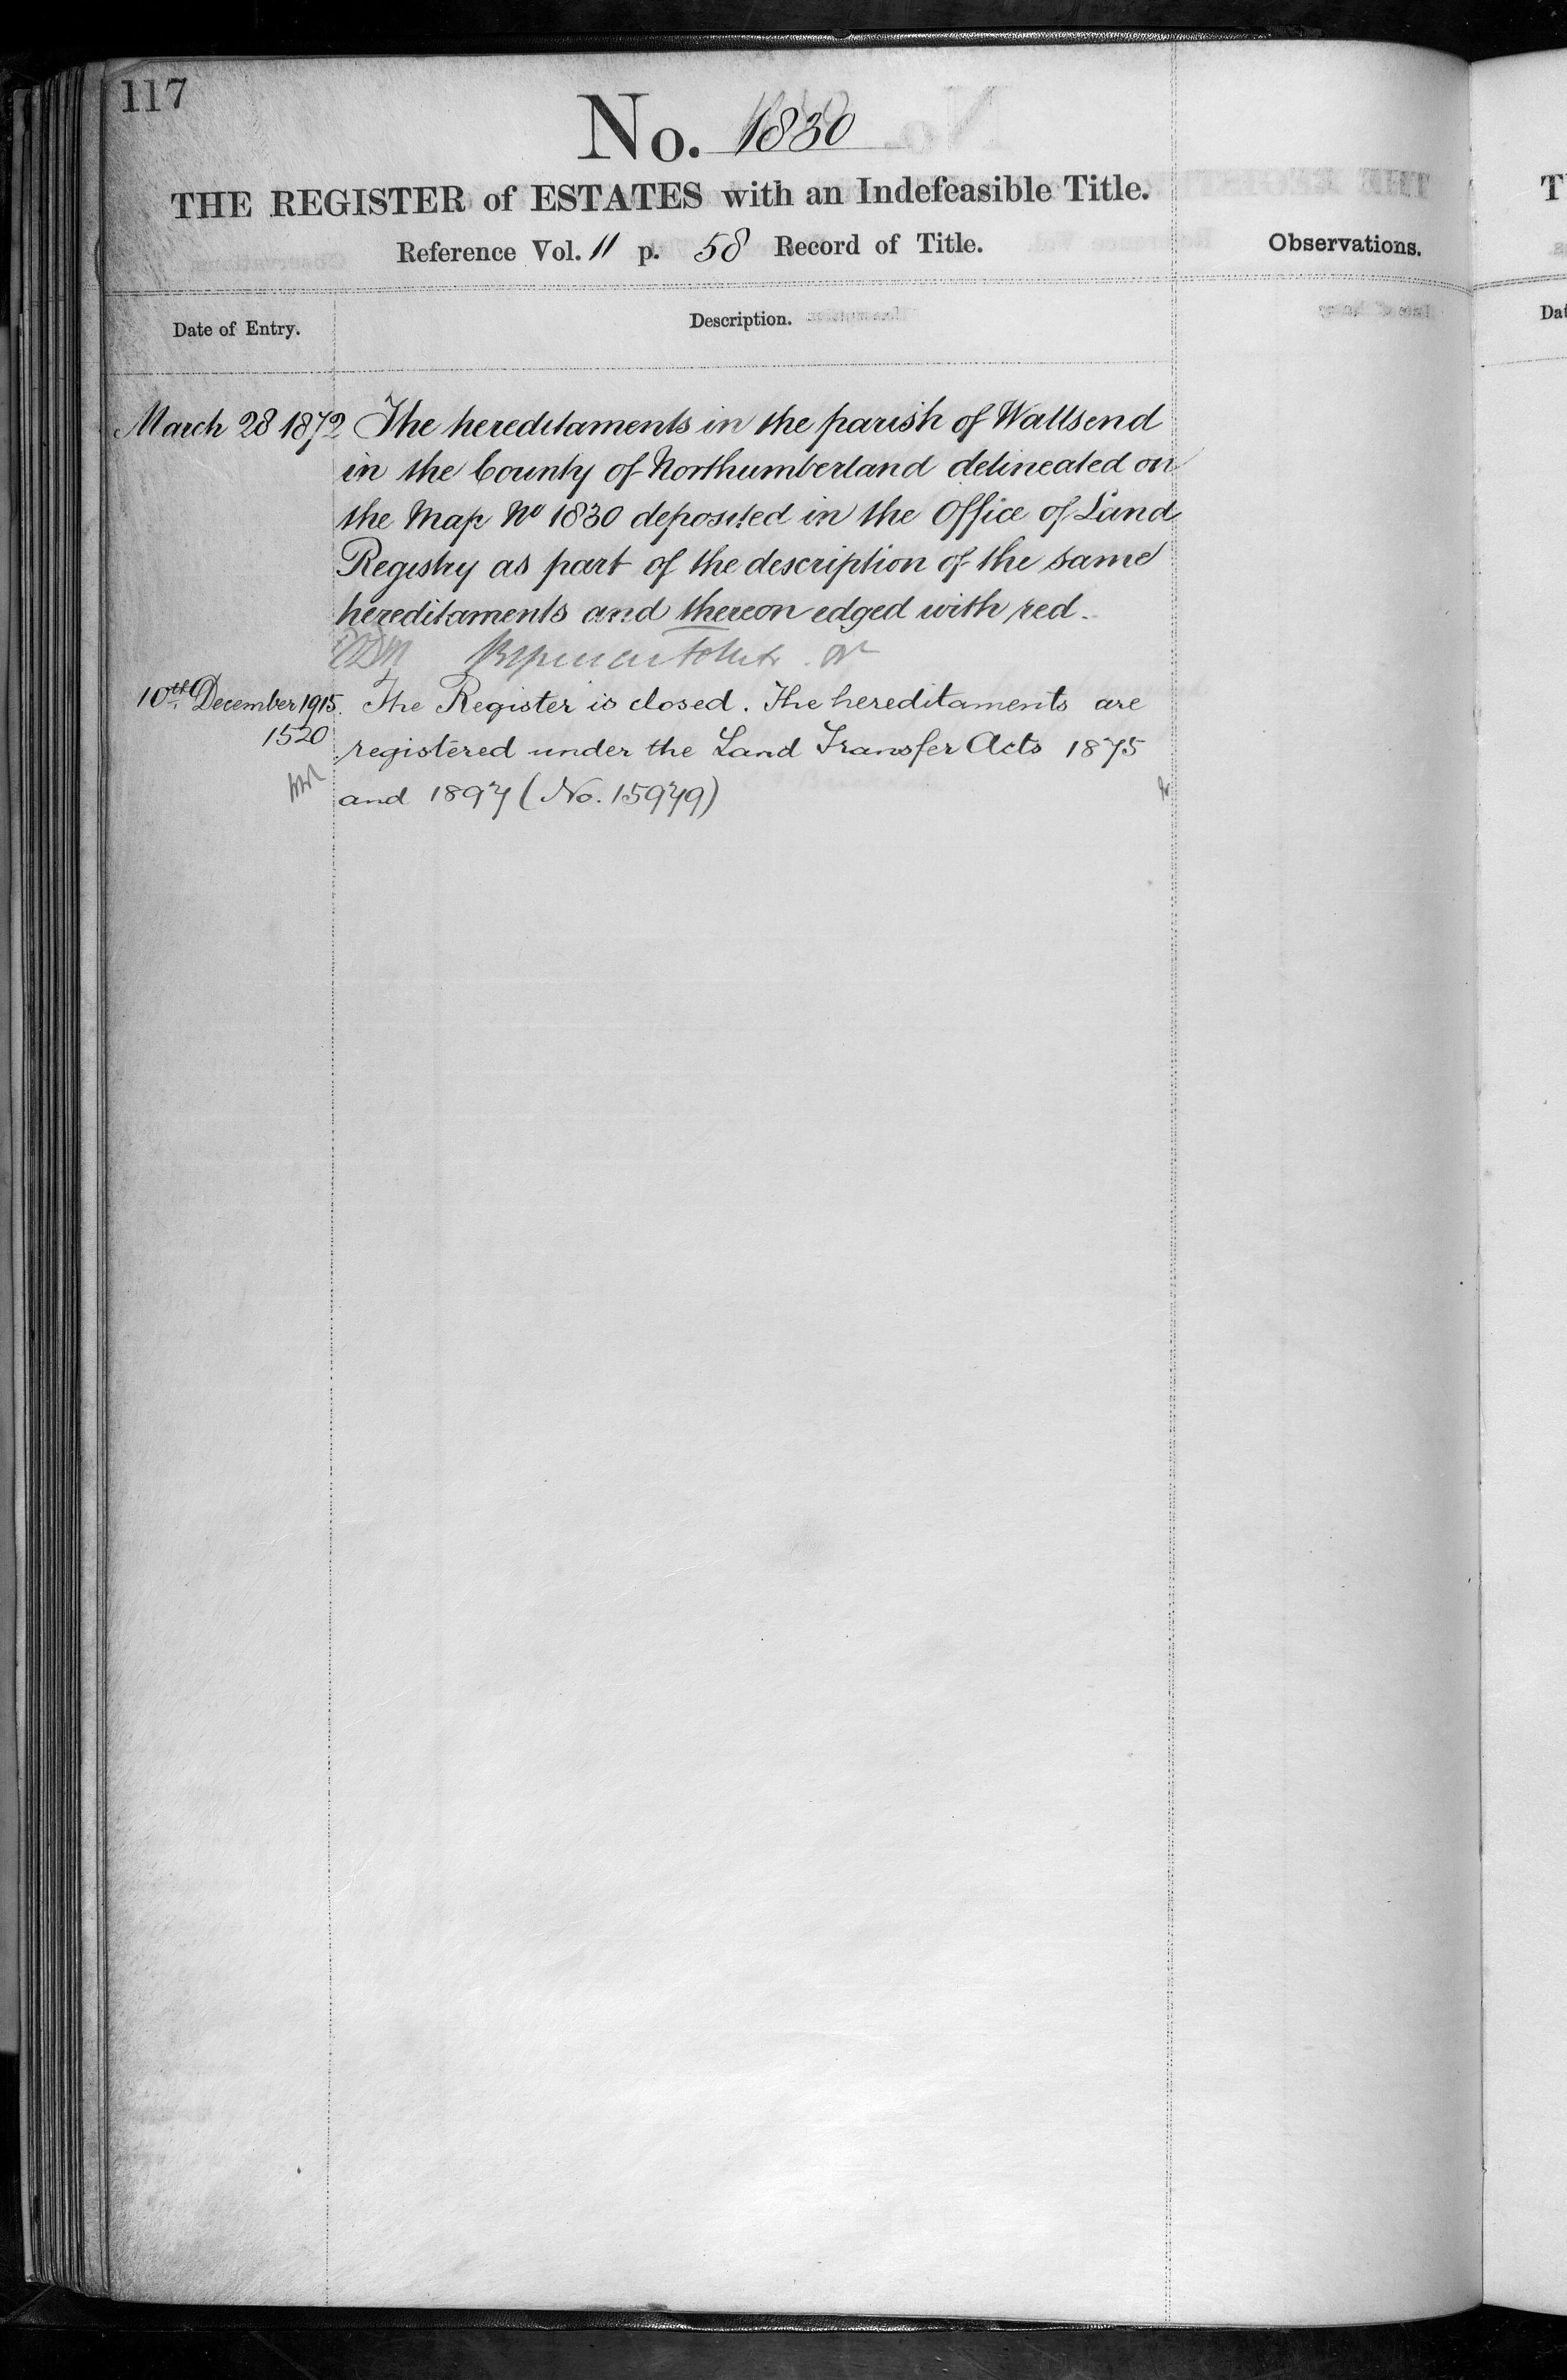 117
No. 1830
THE REGISTER of ESTATES with an Indefeasible Title.
Reference Vol. 11 p. 58 Record of Title.
Observations.
Date of Entry.
Description.
March 28 1872 The hereditaments in the parish of Wallsend
in the County of Northumberland delineated on
the Map No 1830 deposited in the Office of Land
Registry as part of the description of the same
hereditaments and thereon edged with red.
10th December 1915. The Register is closed. The hereditaments are
1520 registered under the Land Transfer Acts 1875
and 1897 (No. 15979)
T
Dat